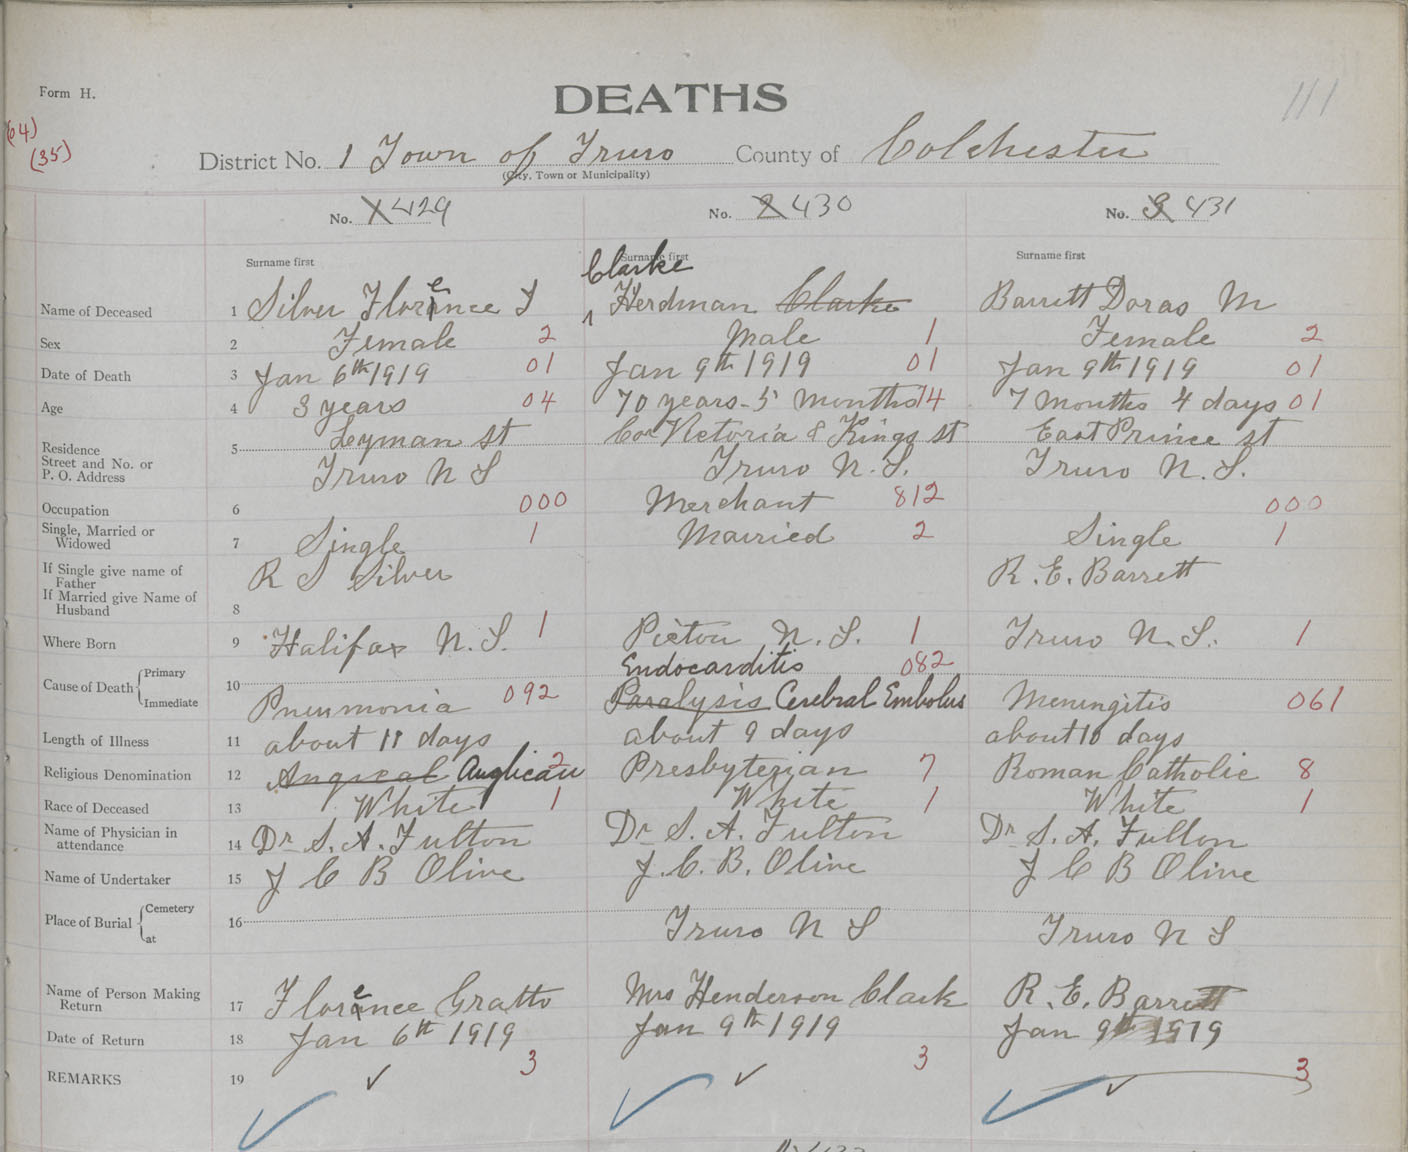 111
Form H.
DEATHS
(64)
(35)
District No. 1 Town of Truro County of Colchester
(City, Town or Municipality)
No. 1 429 No. 2 430 No. 3 431
Surname first Surname first Surname first
Clarke
Name of Deceased 1 Silver Florence J Herdman Clarke Barrett Doras M
Sex 2 Female 2 Male 1 Female 2
Date of Death 3 Jan 6th 1919 01 Jan 9th 1919 01 Jan 9th 1919 01
Age 4 3 years 04 70 years - 5 months 14 7 months 4 days 01
Residence Street and No. or P. O. Address 5 Leyman St Cor Victoria & Kings St East Prince St
Truro N S Truro N.S. Truro N.S.
Occupation 6 000 Merchant 812 000
Single, Married or Widowed 7 Single 1 Married 2 Single 1
If Single give name of Father R S Silver R. E. Barrett
If Married give Name of Husband 8
Where Born 9 Halifax N.S. 1 Pictou N.S. 1 Truro N.S. 1
Cause of Death Primary 10 Endocarditis 082
Immediate Pneumonia 092 Paralysis Cerebral Embolus Meningitis 061
Length of Illness 11 about 11 days about 9 days about 10 days
Religious Denomination 12 Angical Anglican 2 Presbyterian 7 Roman Catholic 8
Race of Deceased 13 White 1 White 1 White 1
Name of Physician in attendance 14 Dr S. A. Fulton Dr S. A. Fulton Dr S. A. Fulton
Name of Undertaker 15 J C B Olive J. C. B. Olive J C B Olive
Place of Burial Cemetery 16
at Truro N S Truro N S
Name of Person Making Return 17 Florence Gratto Mrs Henderson Clark R. E. Barrett
Date of Return 18 Jan 6th 1919 Jan 9th 1919 Jan 9th 1919
REMARKS 19 3 3 3